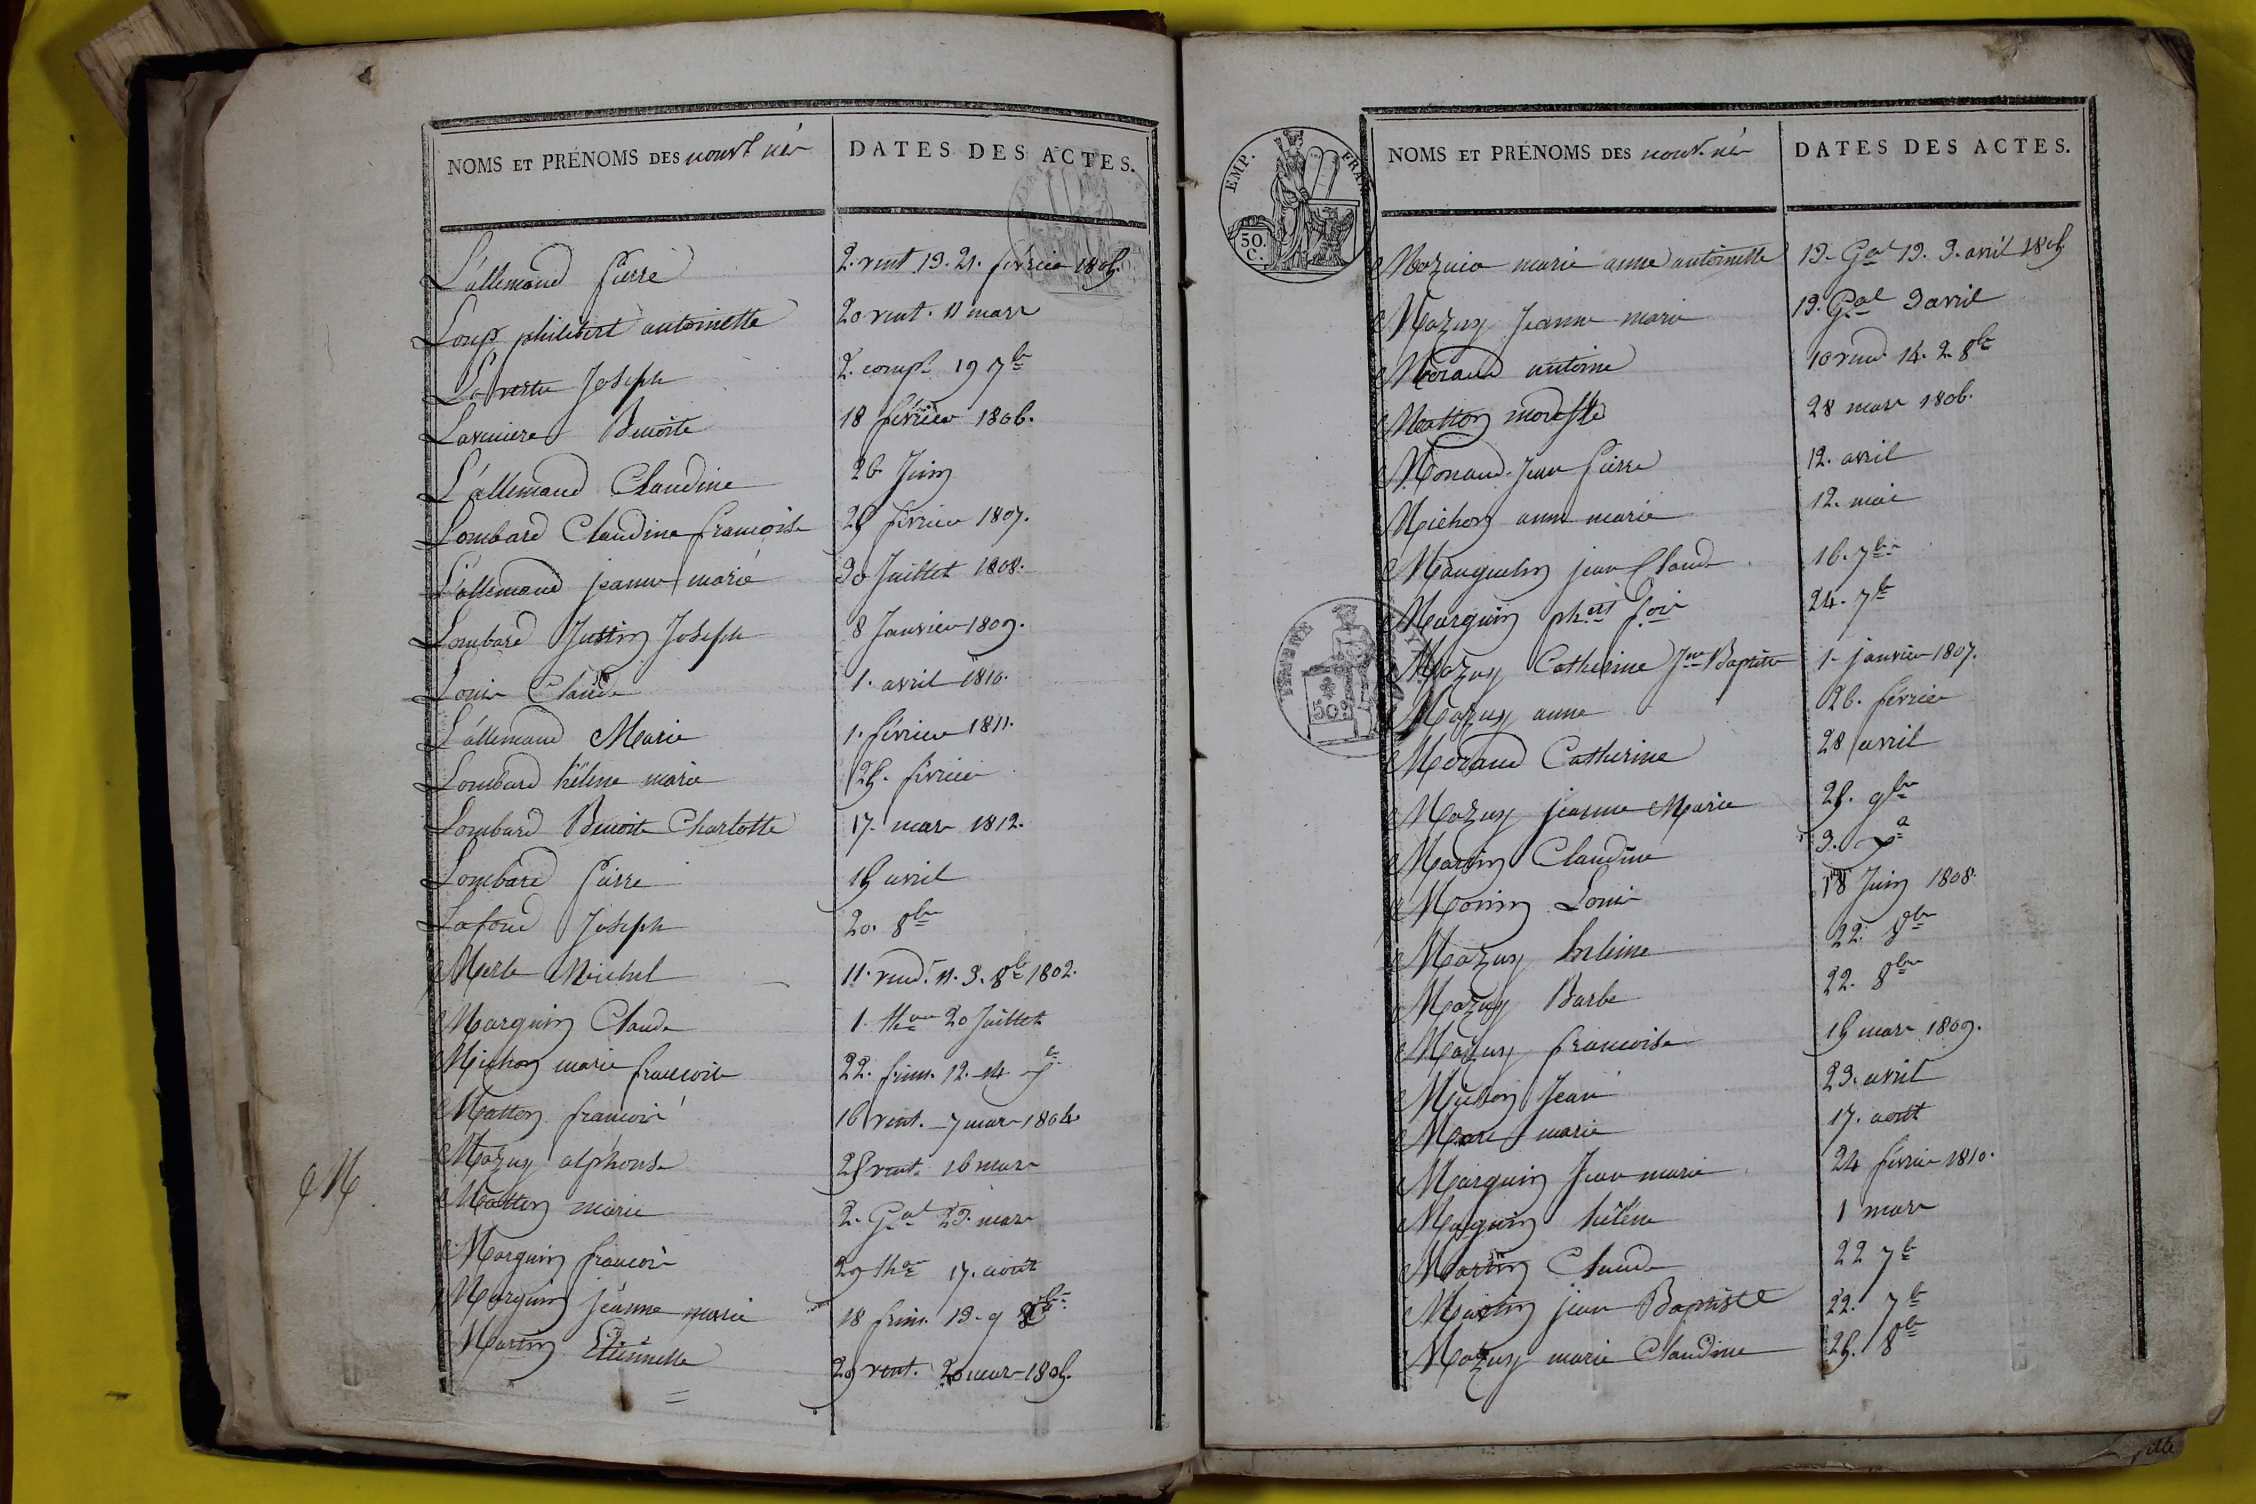 NOMS ET PRÉNOMS DES nouv.t né
DATES DES ACTES.
L'allemand Pierre 2. vent 13. 21. février 1805.
Loup philibert antoinette 20 vent. 11 mars
Lavertu Joseph 2. compl. 19 7bre
Benoite 18 février 1806.
L'allemand Claudine 26 Juin
Lombard Claudine françoise 25 février 1807.
L'allemand jeanne marie 30 Juillet 1808.
Lombard Justin Joseph 8 Janvier 1809.
Louis Claude 1. avril 1810.
L'allemand Marie 1. février 1811.
Lombard hélène marie 25. février
Lombard Benoite Charlotte 17. mars 1812.
Lombard Pierre 15 avril
Lafond Joseph 20. 8bre
M
Merle Michel 11. vend. 11. 3. 8bre 1802.
Marguin Claude 1. ther 20 Juillet
Michon marie françoise 22. frim. 12. 14
Matton françois 16 vent. 7 mars 1804
Mazuy alphonse 25 vent. 16 mars
Matton marie 2. Gal 23. mars
Marguin françois 29 ther 17. aout
Marguin jeanne marie 18 frim. 13. 9
Martin Etiennette 29 vent. 20 mars 1805.
EMP. FRAN.
50. C.
NOMS ET PRÉNOMS DES nouv. né
DATES DES ACTES.
marie anne antoinette 13. Gal 13. 3. avril 1805
Mazuy Jeanne marie 13. Gal 3 avril
Moraud antoine 10 vend. 14. 2. 8bre
Matton modeste 28 mars 1806.
Monaud Jean Pierre 12. avril
Michon anne marie 12. mai
Mauguelin jean Claude 16. 7bre
Marguin phert 24. 7bre
TIMBRE
50
Mazuy Catherine Jne Baptiste 1. janvier 1807.
Mazuy anne 26. février
Moraud Catherine 28 avril
Mazuy jeanne Marie 25. 9bre
Martin Claudine 3.
Monin Louis 18 Juin 1808.
Mazuy 22. 8bre
Mazuy Barbe 22. 8bre
Mazuy françoise 15 mars 1809.
Michon Jean 23. avril
marie 17. aout
Marguin Jean marie 24 février 1810.
Marguin hélène 1 mars
Martin Claude 22 7bre
Martin jean Baptiste 22. 7bre
Mazuy marie Claudine 25. 8bre